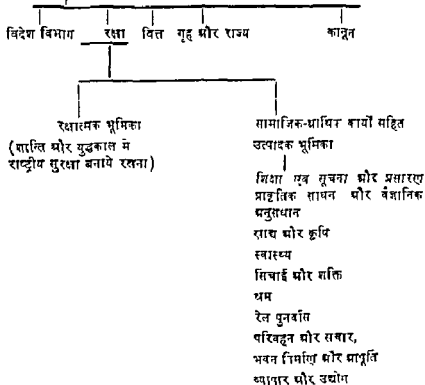 विदेश विभाग रक्षा वित्त गृह और राज्य कानून
रक्षात्मक भूमिका
(शान्ति और युद्धकाल मे
राष्ट्रीय सुरक्षा बनाये रखना)
सामाजिक-आर्थिक कार्यों सहित
उत्पादक भूमिका
शिक्षा एव सूचना और प्रसारण
प्राकृतिक साधन और वैज्ञानिक
अनुसधान
खाद्य और कृषि
स्वास्थ्य
सिचाई और शक्ति
श्रम
रेल पुनर्वास
परिवहन और सचार,
भवन निर्माण और आपूर्ति
व्यापार और उद्योग